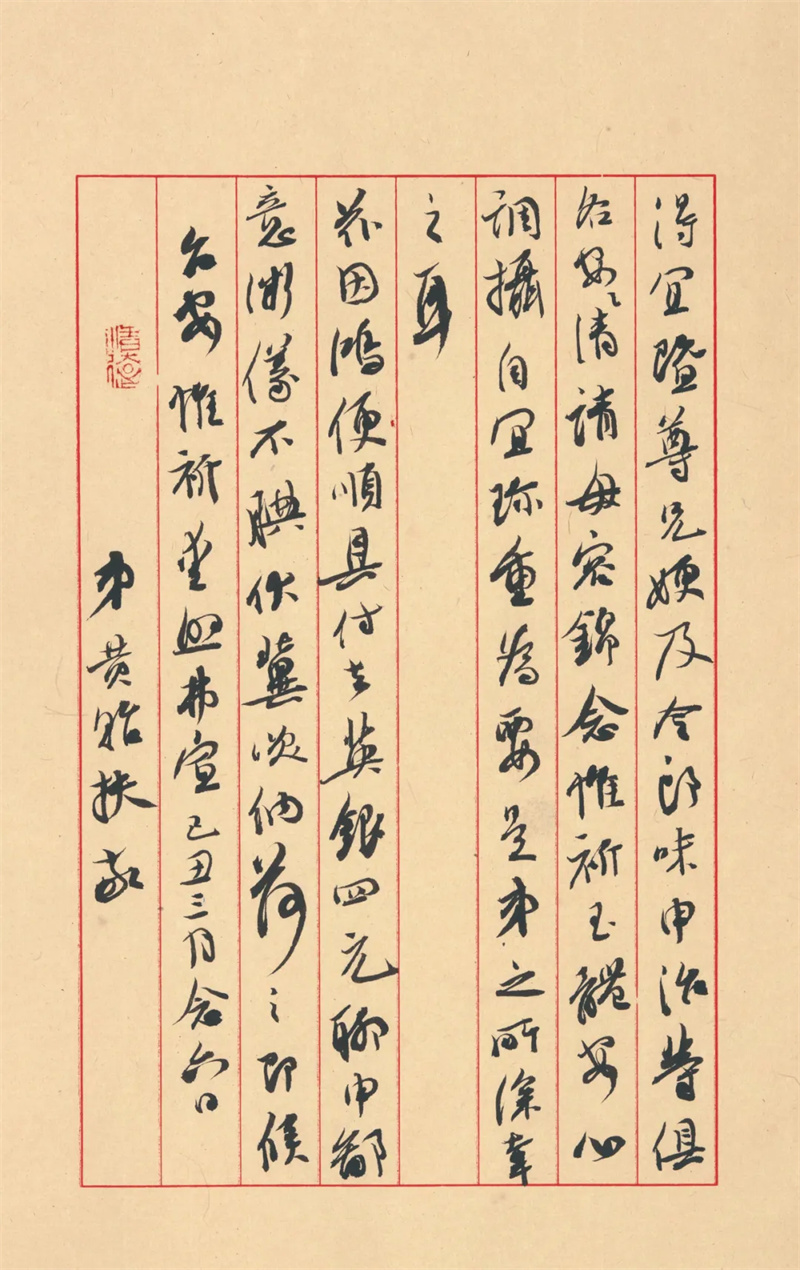 得宜暨尊兄嫂及令郎味申治等俱
各安々清請毋容錦念惟祈玉體安心
調攝自宜珍重為要是弟之所深幸
之耳
茲因鴻便順具付去英銀四元聊申鄙
意微儀不腆伏冀笑納荷之即候
台安惟祈愛照弗宣己丑三月念六日
弟黄貽扶